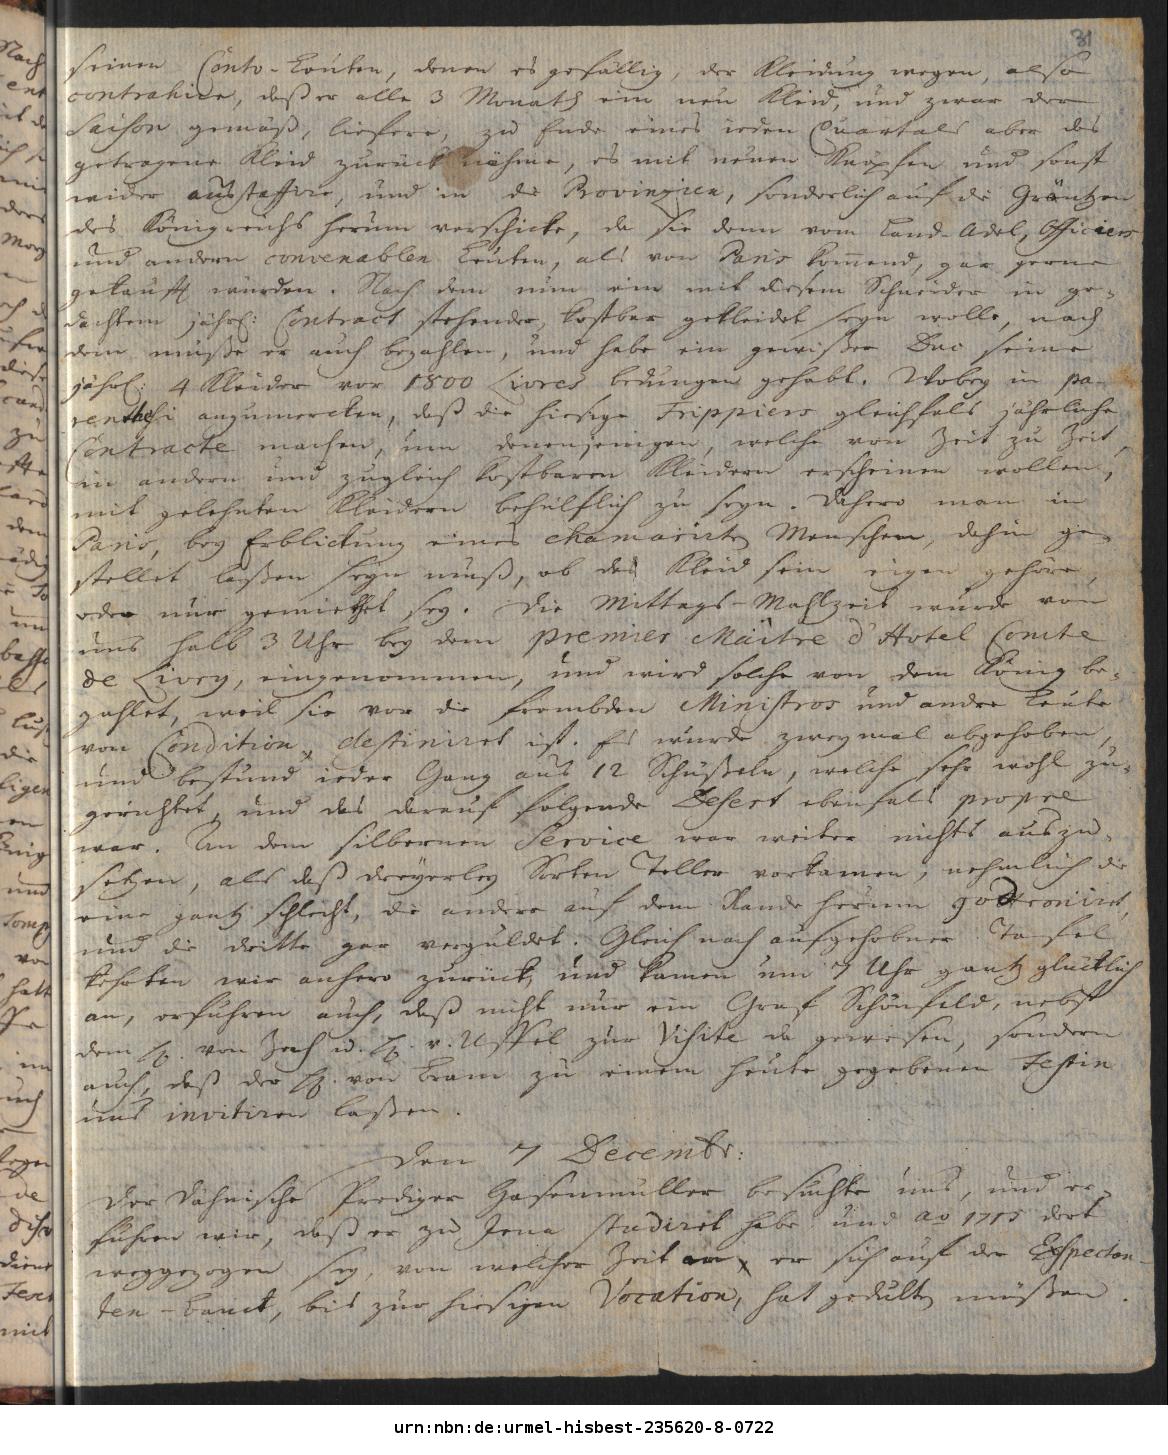 31
seinen Conto-Leuten, denen es gefällig, der Kleidung wegen, also
contrahire, daß er alle 3 Monath ein neu Kleid, und zwar der
Saison gemäß, liefere, zu Ende eines ieden Quartals aber das
getragene Kleid zurück nähme, es mit neuen Knöpfen und sonst
wider ausstaffire, und in die Provinzien, sonderlich auf die Gräntzen
des Königreichs herum verschicke, da sie denn vom Land-Adel, Officiers
und andern convenablen Leuten, als von Paris kom̄end, gar gerne
gekaufft würden. Nach dem nun ein mit diesem Schneider in ge-
dachtem jährl: Contract stehender, kostbar gekleidet seyn wolle, nach
dem müße er auch bezahlen, und habe ein gewißer Duc seine
jährl: 4 Kleider vor 1800 Livres bedungen gehabt. Wobey in pa-
renthesi anzumercken, daß die hiesige Frippiers gleichfals jährliche
Contracte machen, um denenjenigen, welche von Zeit zu Zeit
in andern und zugleich kostbaren Kleidern erscheinen wollen,
mit gelehnten Kleidern behülflich zu seyn. Dahero man in
Paris, bey Erblickung eines chamarirten Menschen, dahin ge-
stellet laßen seyn muß, ob das Kleid sein eigen gehöre,
oder nur gemiethet sey. Die Mittags-Mahlzeit wurde von
uns halb 3 Uhr bey dem premier Maitre d'Hotel Comte
de Livry, eingenommen, und wird solche von dem König be-
zahlet, weil sie vor die frembden Ministros und andre Leute
von Condition destiniret ist. Es wurde zweymal abgehoben,
und bestund ieder Gang aus 12 Schüßeln, welche sehr wohl zu-
gerichtet, und das darauf folgende Desert ebenfals propre
war. An dem silbernen Service war weiter nichts auszu-
setzen, als daß dreyerley Sorten Teller vorkamen, nehmlich die
eine gantz schlecht, die andere auf dem Rande herum godroniret,
und die dritte gar verguldet. Gleich nach aufgehobner Taffel
kehrten wir anhero zurück, und kamen um 7 Uhr gantz glücklich
an, erfuhren auch, daß nicht nur ein Graf Schönfeld, nebst
dem H. von Zech u. H. v. Uffel zur Visite da gewesen, sondern
auch, daß der H. von Bram zu einem heute gegebenen Festin
uns invitiren laßen.
den 7 Decembr:
Der Dähnische Prediger Hasenmüller besuchte uns, und er-
fuhren wir, daß er zu Jena studiret habe und ao 1715 dort
weggezogen sey, von welcher Zeit an er sich auf der Exspectan-
ten-Banck, bis zur hiesigen Vocation, hat gedulten müßen.
urn:nbn:de:urmel-hisbest-235620-8-0722